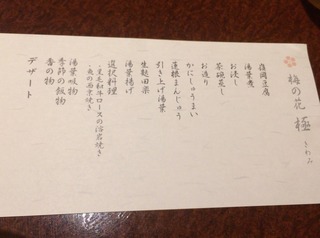 梅の花 極
きわみ
嶺岡豆腐
湯葉煮
お浸し
茶碗蒸し
お造り
かにしゅうまい
蓮根まんじゅう
引き上げ湯葉
生麩田楽
湯葉揚げ
選択料理
・黒毛和牛ロースの溶岩焼き
・魚の西京焼き
湯葉吸物
季節の飯物
香の物
デザート